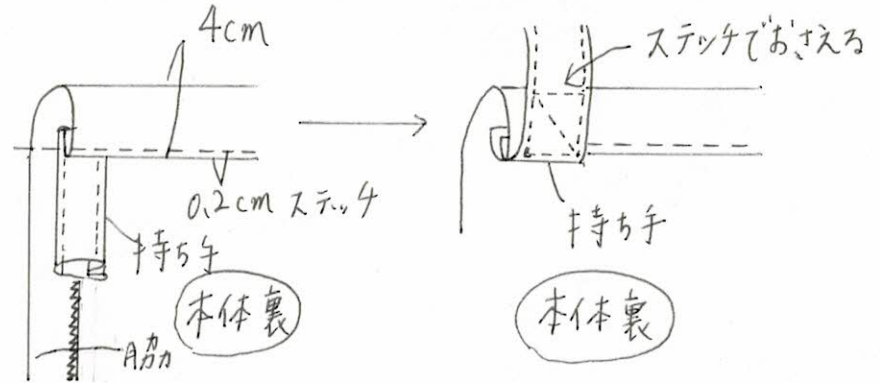 4cm
0.2cm ステッチ
持ち手
本体裏
脇
ステッチでおさえる
持ち手
本体裏